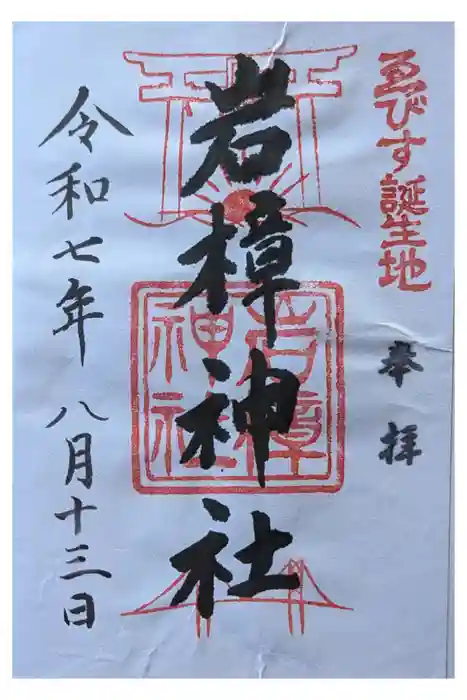 ゑびす誕生地
奉拝
岩樟神社
岩樟神社
令和七年八月十三日